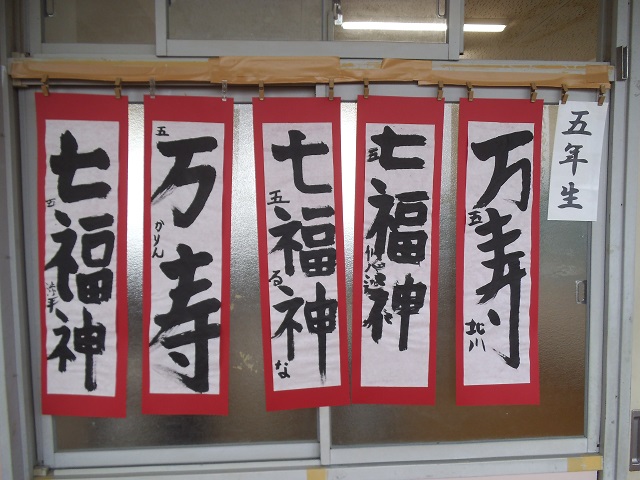 五年生
万寿
五
北川
七福神
五
七福神
五
るな
万寿
五
かりん
七福神
五